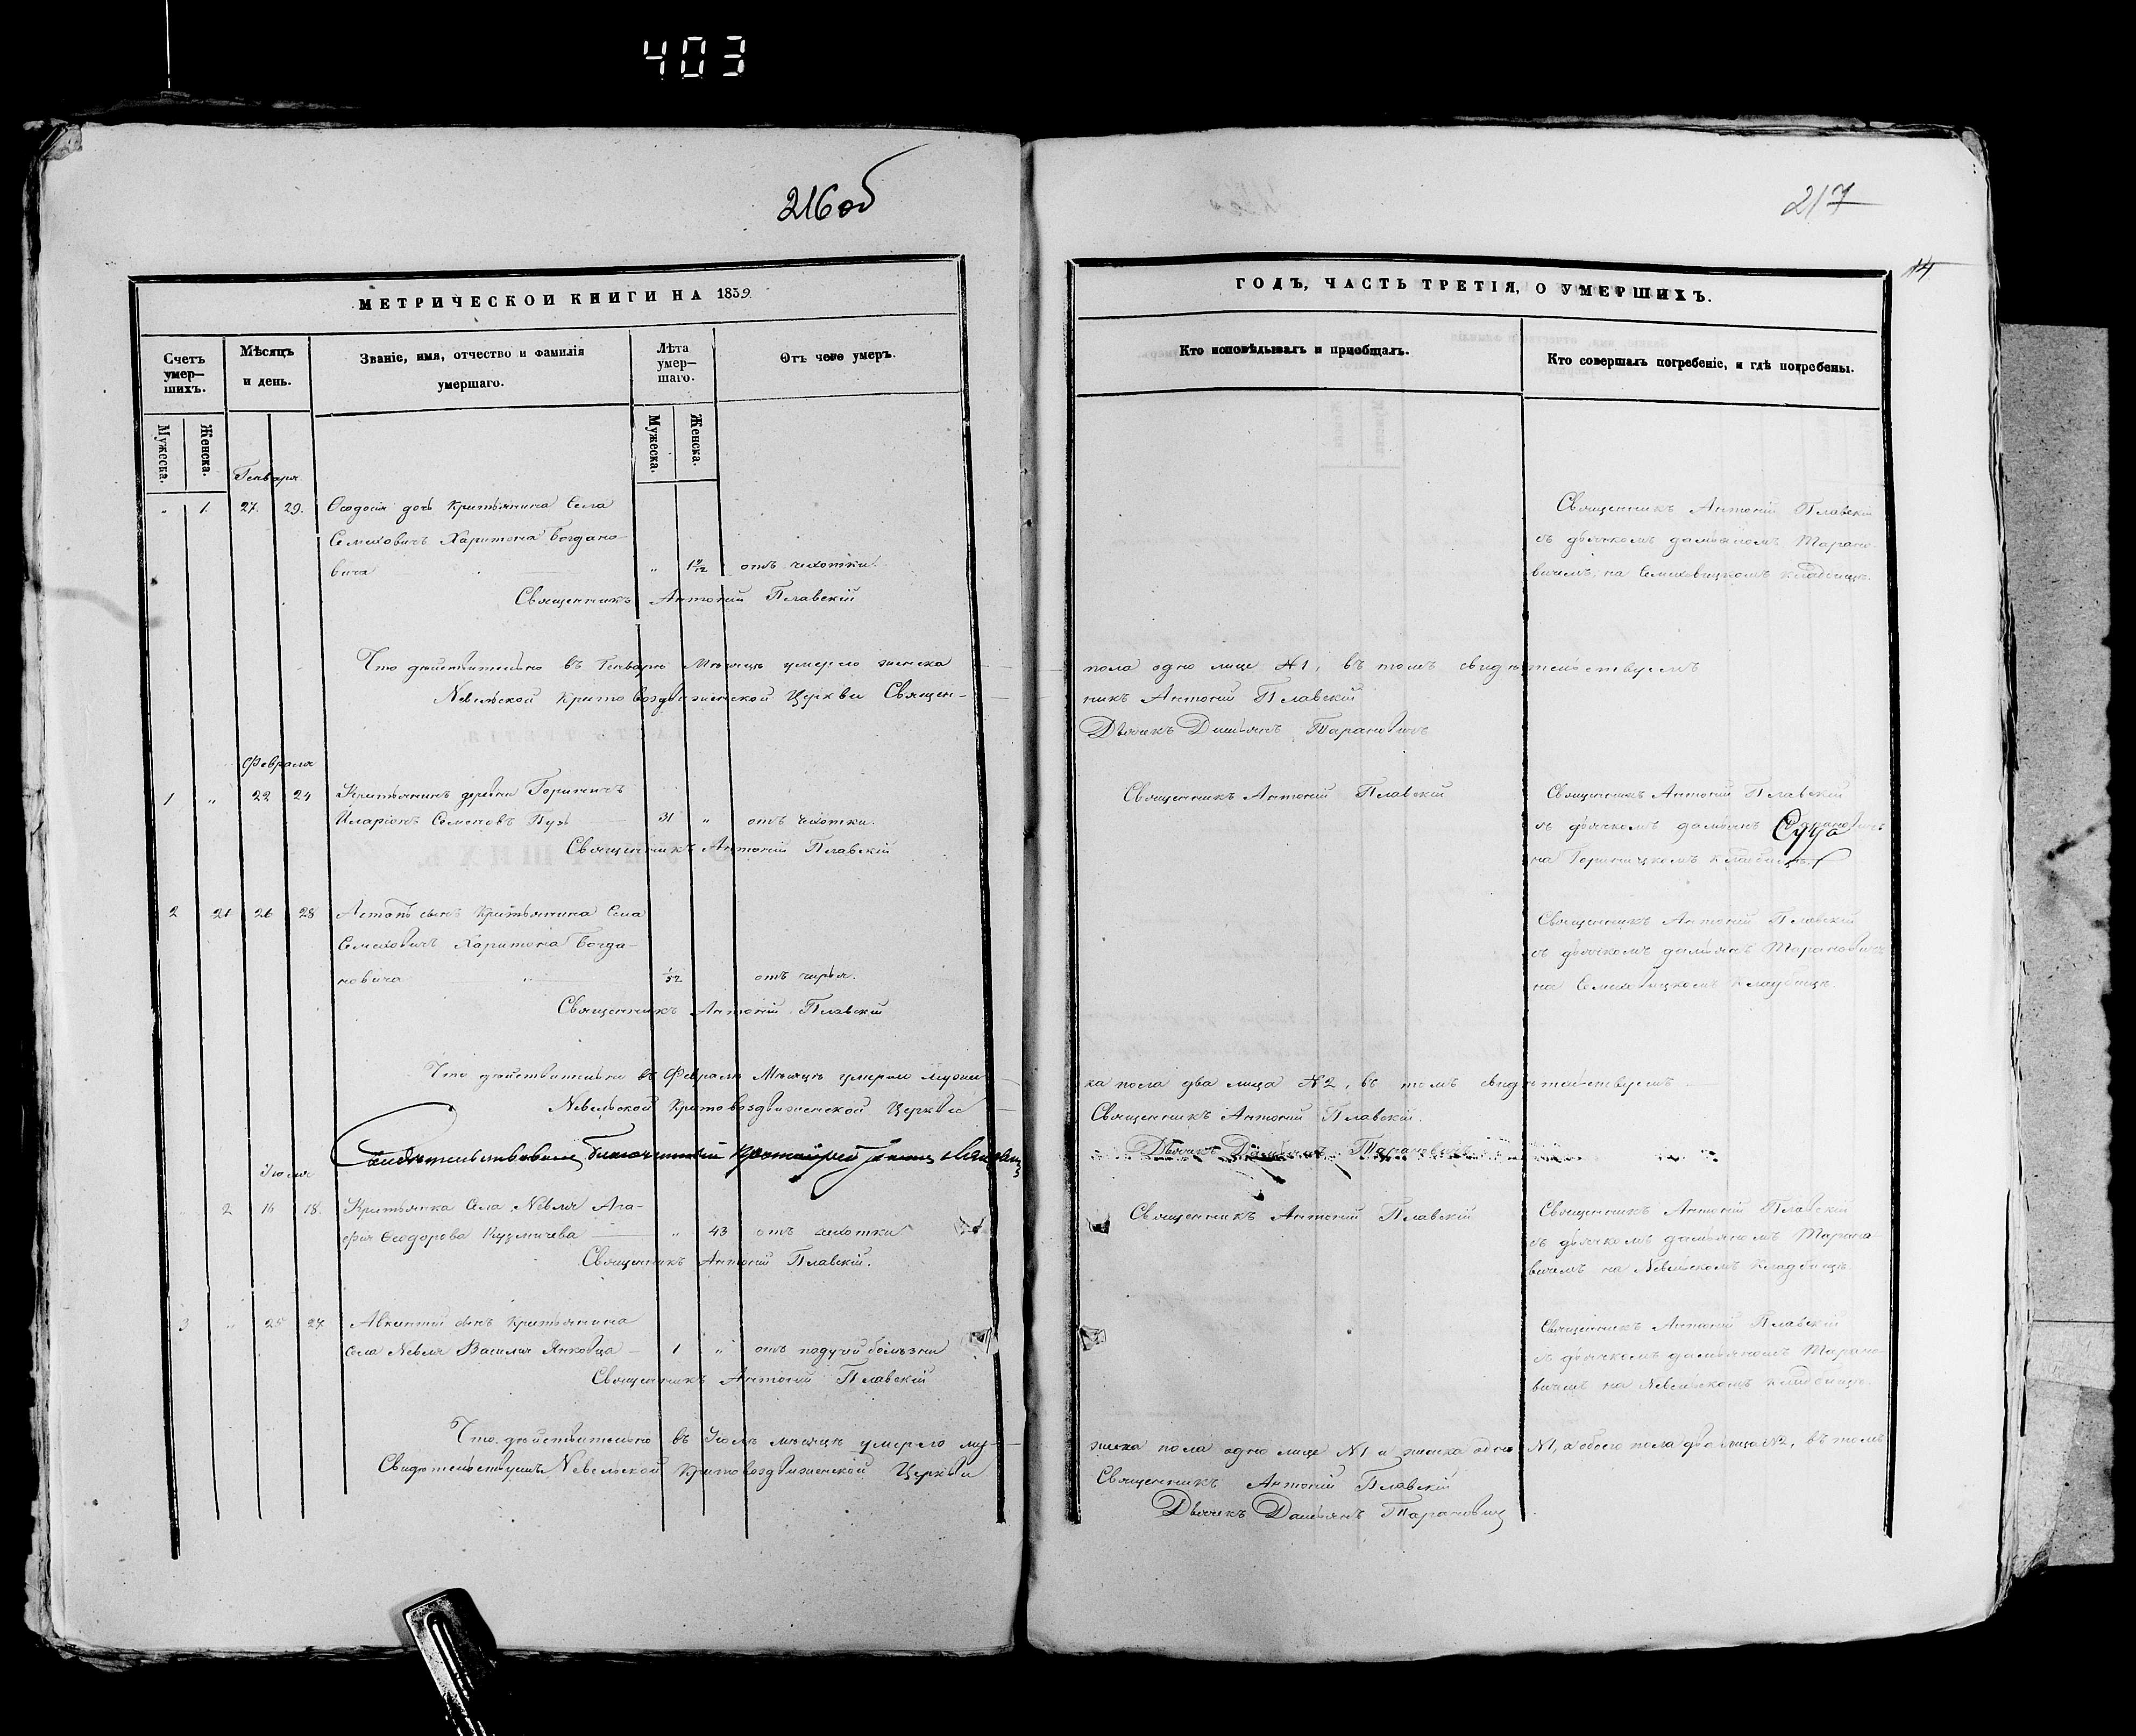 403
216об
МЕТРИЧЕСКОЙ КНИГИ НА 1839
Счетъ умер-шихъ.
Мѣсяцъ и день.
Званіе, имя, отчество и фамилія умершаго.
Лѣта умер-шаго.
Отъ чего умеръ.
Мужеска.
Женска.
Мужеска.
Женска.
Генваря
" 1. 27. 29. Ѳеодосія дочь Крестьянина Села
Семиховичъ Харитона Богдано-
вича " отъ чихотки.
Священникъ Антоній Плавскій
Что дѣйствительно въ Генварѣ Мѣсяцѣ умерло женска
Невельской Крестовоздвиженской Церкви Священ-
Февраля
1 " 22 24 Крестьянинъ деревни Гориничъ
Иларіонъ Семеновъ 31 " отъ чихотки.
Священникъ Антоній Плавскій
2 26 28 сынъ Крестьянина Села
Семиховичъ Харитона Богда-
новича 1/52 отъ чирья.
Священникъ Антоній Плавскій
Что дѣйствительно въ Февралѣ Мѣсяцѣ умерло мужес-
Невельской Крестовоздвиженской Церкви
Свидѣтельствовалъ Благочинный
2 16 18. Крестьянка Села Невля Ага-
фія Ѳеодорова Кузмичева " 43 отъ чихотки
Священникъ Антоній Плавскій.
3 " 25 27 сынъ Крестьянина
села Невля Василія Янковца 1 " отъ падучей болѣзни
Священникъ Антоній Плавскій
Что дѣйствительно въ мѣсяцѣ умерло му-
Свидѣтельствуемъ Невельской Крестовоздвиженской Церкви
217
14
ГОДЪ, ЧАСТЬ ТРЕТІЯ, О УМЕРШИХЪ.
Кто исповѣдывалъ и пріобщалъ.
Кто совершалъ погребеніе, и гдѣ погребены.
Священникъ Антоній Плавскій
съ дьячкомъ Дамьяномъ Тарано-
вичемъ, на Семиховицкомъ Кладбищѣ.
пола одно лице №1, въ томъ свидѣтельствуемъ
никъ Антоній Плавскій
Дьячекъ Дамьянъ Тарановичъ
Священникъ Антоній Плавскій
Священникъ Антоній Плавскій
съ дьячкомъ Дамьянъ
на Гориницкомъ Кладбищѣ.
Священникъ Антоній Плавскій
съ дьячкомъ Дамьянъ Тарановичъ
на Семиховицкомъ Кладбищѣ.
ка пола два лица №2, въ томъ свидѣтельствуемъ
Священникъ Антоній Плавскій.
Дьячекъ Дамьянъ Тарановичъ
Священникъ Антоній Плавскій
Священникъ Антоній Плавскій
съ дьячкомъ Дамьяномъ Тарано-
вичемъ на Невельскомъ Кладбищѣ.
Священникъ Антоній Плавскій
съ дьячкомъ Дамьяномъ Тарано-
вичемъ на Невельскомъ Кладбищѣ.
жеска пола одно лице №1 и женска одно №1, а обоего пола два лица №2, въ томъ
Священникъ Антоній Плавскій
Дьячекъ Дамьянъ Тарановичъ